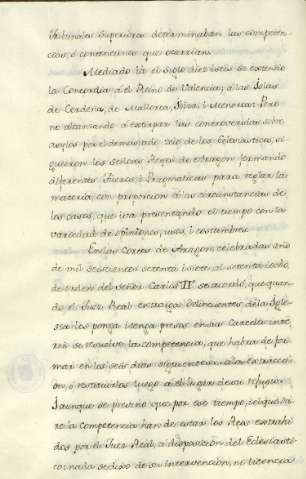 Tribunales Superiores determinaban las competen-
cias, ó contenciones que ocurrian.
Mediado ia el Siglo diez i seis se extendió
la Concordia á el Reino de Valencia; á las Islas
de Cerdeña, de Mallorca, Iviza, i Menorca: Pero
no alcanzando á extirpar las controversias sobre
asylos por el demasiado zelo de los Eclesiasticos, si-
guieron los Señores Reyes de Aragon formando
diferentes Fueros, i Pragmaticas para reglar la
materia, con proporcion á las circunstancias de
los casos, que iva presentando el tiempo con la
variedad de opiniones, usos, i costumbres.
En las Cortes de Aragon, celebradas año
de mil seiscientos setenta i siete, al setenta i ocho,
de orden del Señor Carlos II. se acordó, que quan-
do el Juez Real extraiga delinquentes de la Igle-
sia los ponga i tenga presos en sus Carceles inte-
rin se resuelve la competencia, que habrá de fir-
mar en los seis dias siguientes á la extraccion
ó restituirlos luego á el lugar de su refugio:
I aunque se previno que por ese tiempo, i el que du-
re la competencia han de estar los Reos extrahi-
dos por el Juez Real, á disposición del Eclesiasti-
co; nada se dixo de su intervencion, ni licencia